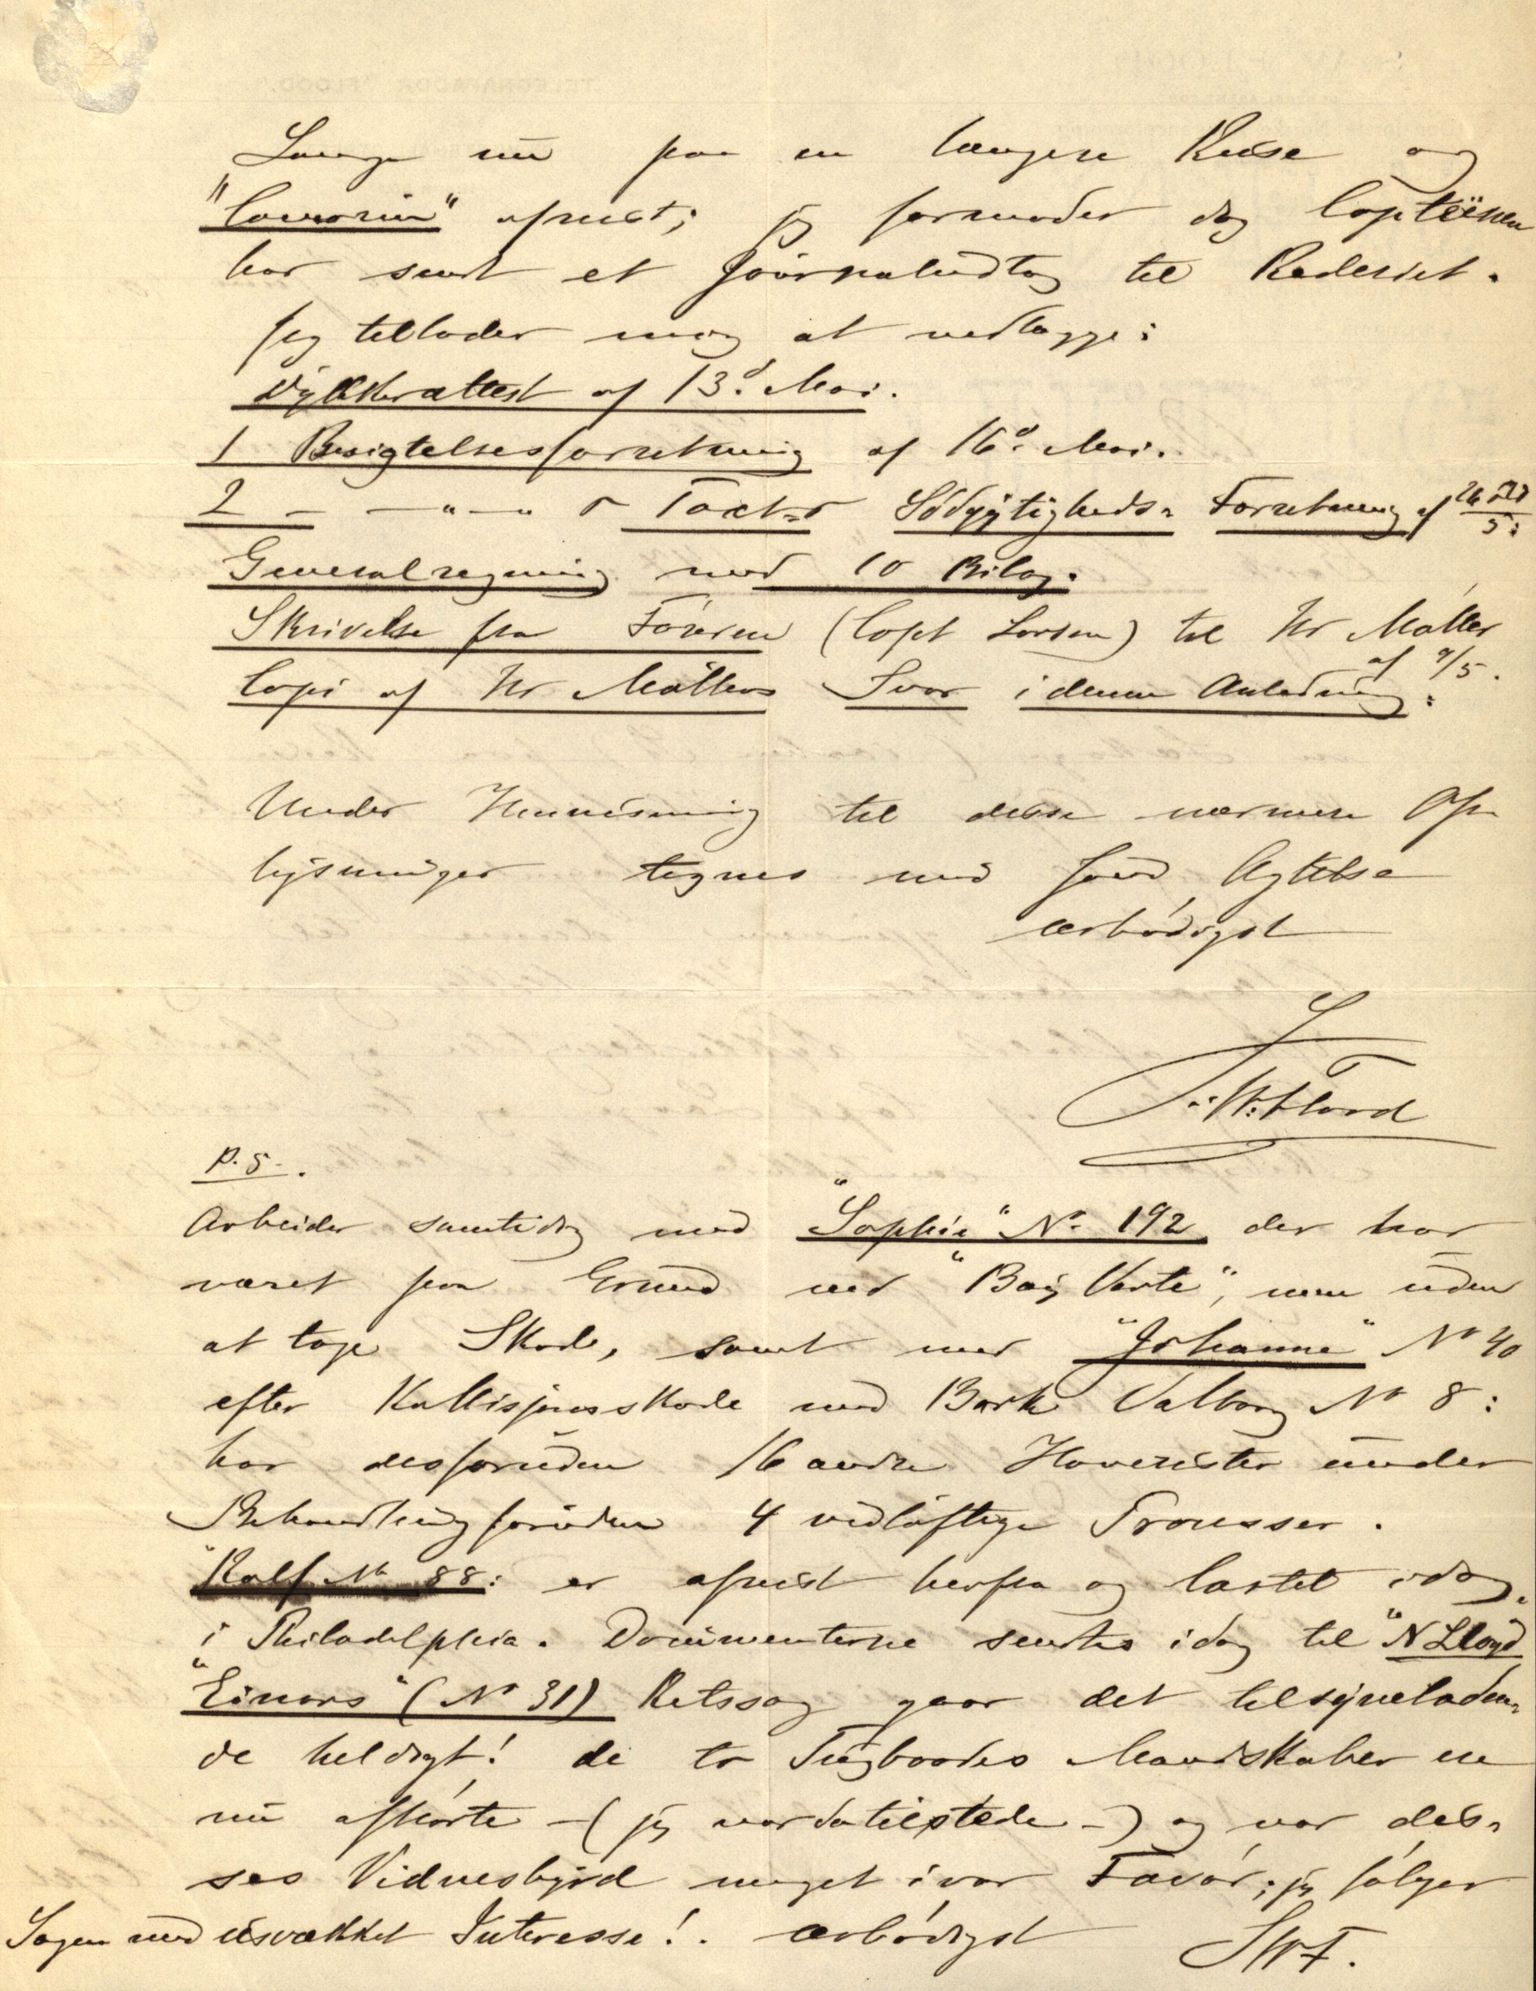 Lange nu paa en længere Reise og
"Comorin" afreist; jeg formoder dog Capteinen
har sendt et Journaludtog til Rederiet.
Jeg tillader mig at vedlægge:
Dykkerattest af 13d. Mai.
1 Besigtelsesforretning af 16d. Mai.
2 – – " – " Taxt- Södygtigheds- Forretning af 26
5:
Generalregning med 10 Bilag.
Skrivelse fra Föreren (Capt Larsen) til Hr Möller
af 9/5.
Copi af Hr Möllers Svar i denne Anledning:
Under Henvisning til disse nærmere Op-
lysninger tegnes med Agtelse
ærbödigst
S. W. Flood
P.S.
Arbeider samtidig med "Sophie" No. 192 der har
været paa Grund ved "Bay Verte", men uden
at tage Skade, samt med "Johanne" No 40
efter Kollisjonsskade med Bark Valborg No 8:
har desforuden 16 andre Havarister under
Behandling foruden 4 vidlöftige Processer.
"Rolf No 88: er afreist herfra og lastet idag
i Philadelphia. Documenterne sendtes idag til "N Lloyd"
"Einars" (No 31) Retssag gaar det tilsyneladen-
de heldigt! de to Tugboades Mandskaber er
nu afhörte – (jeg var da tilstede –) og var dis-
ses Vidnesbyrd meget i vor Favör; jeg fölger
Sagen med usvækket Interesse!. ærbödigst SWF.